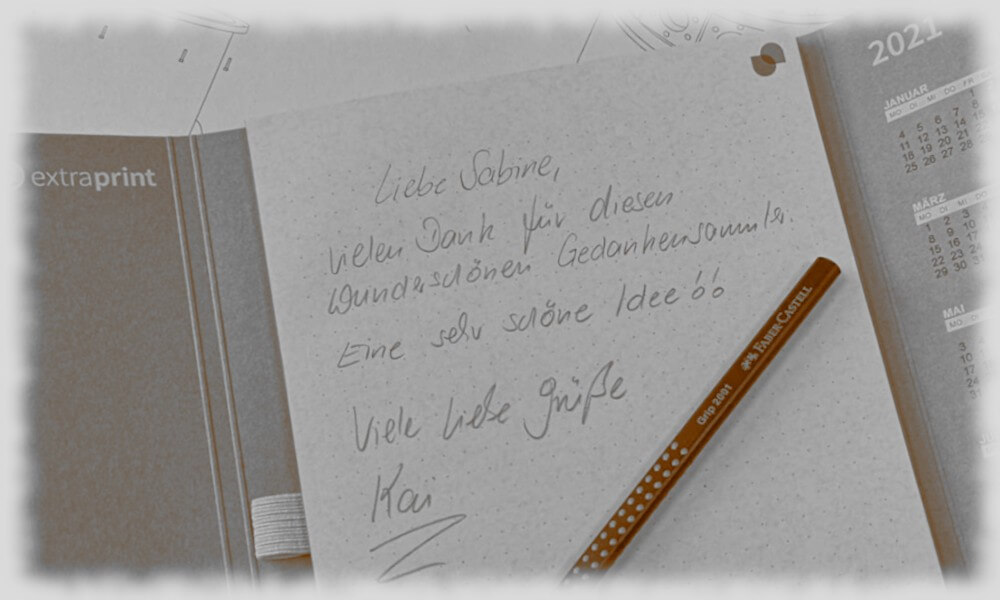 extraprint
Liebe Sabine,
vielen Dank für diesen
wunderschönen Gedankensammler.
Eine sehr schöne Idee!!
Viele liebe Grüße
Kai
FABER-CASTELL
Grip 2001
2021
JANUAR
MO DI MI DO FR
1
4 5 6 7 8
11 12 13 14 15
18 19 20 21 22
25 26 27 28
MÄRZ
MO DI MI DO
1 2 3
8 9 10
15 16 17
22 23 24
29 30
MAI
MO
3
10
17
24